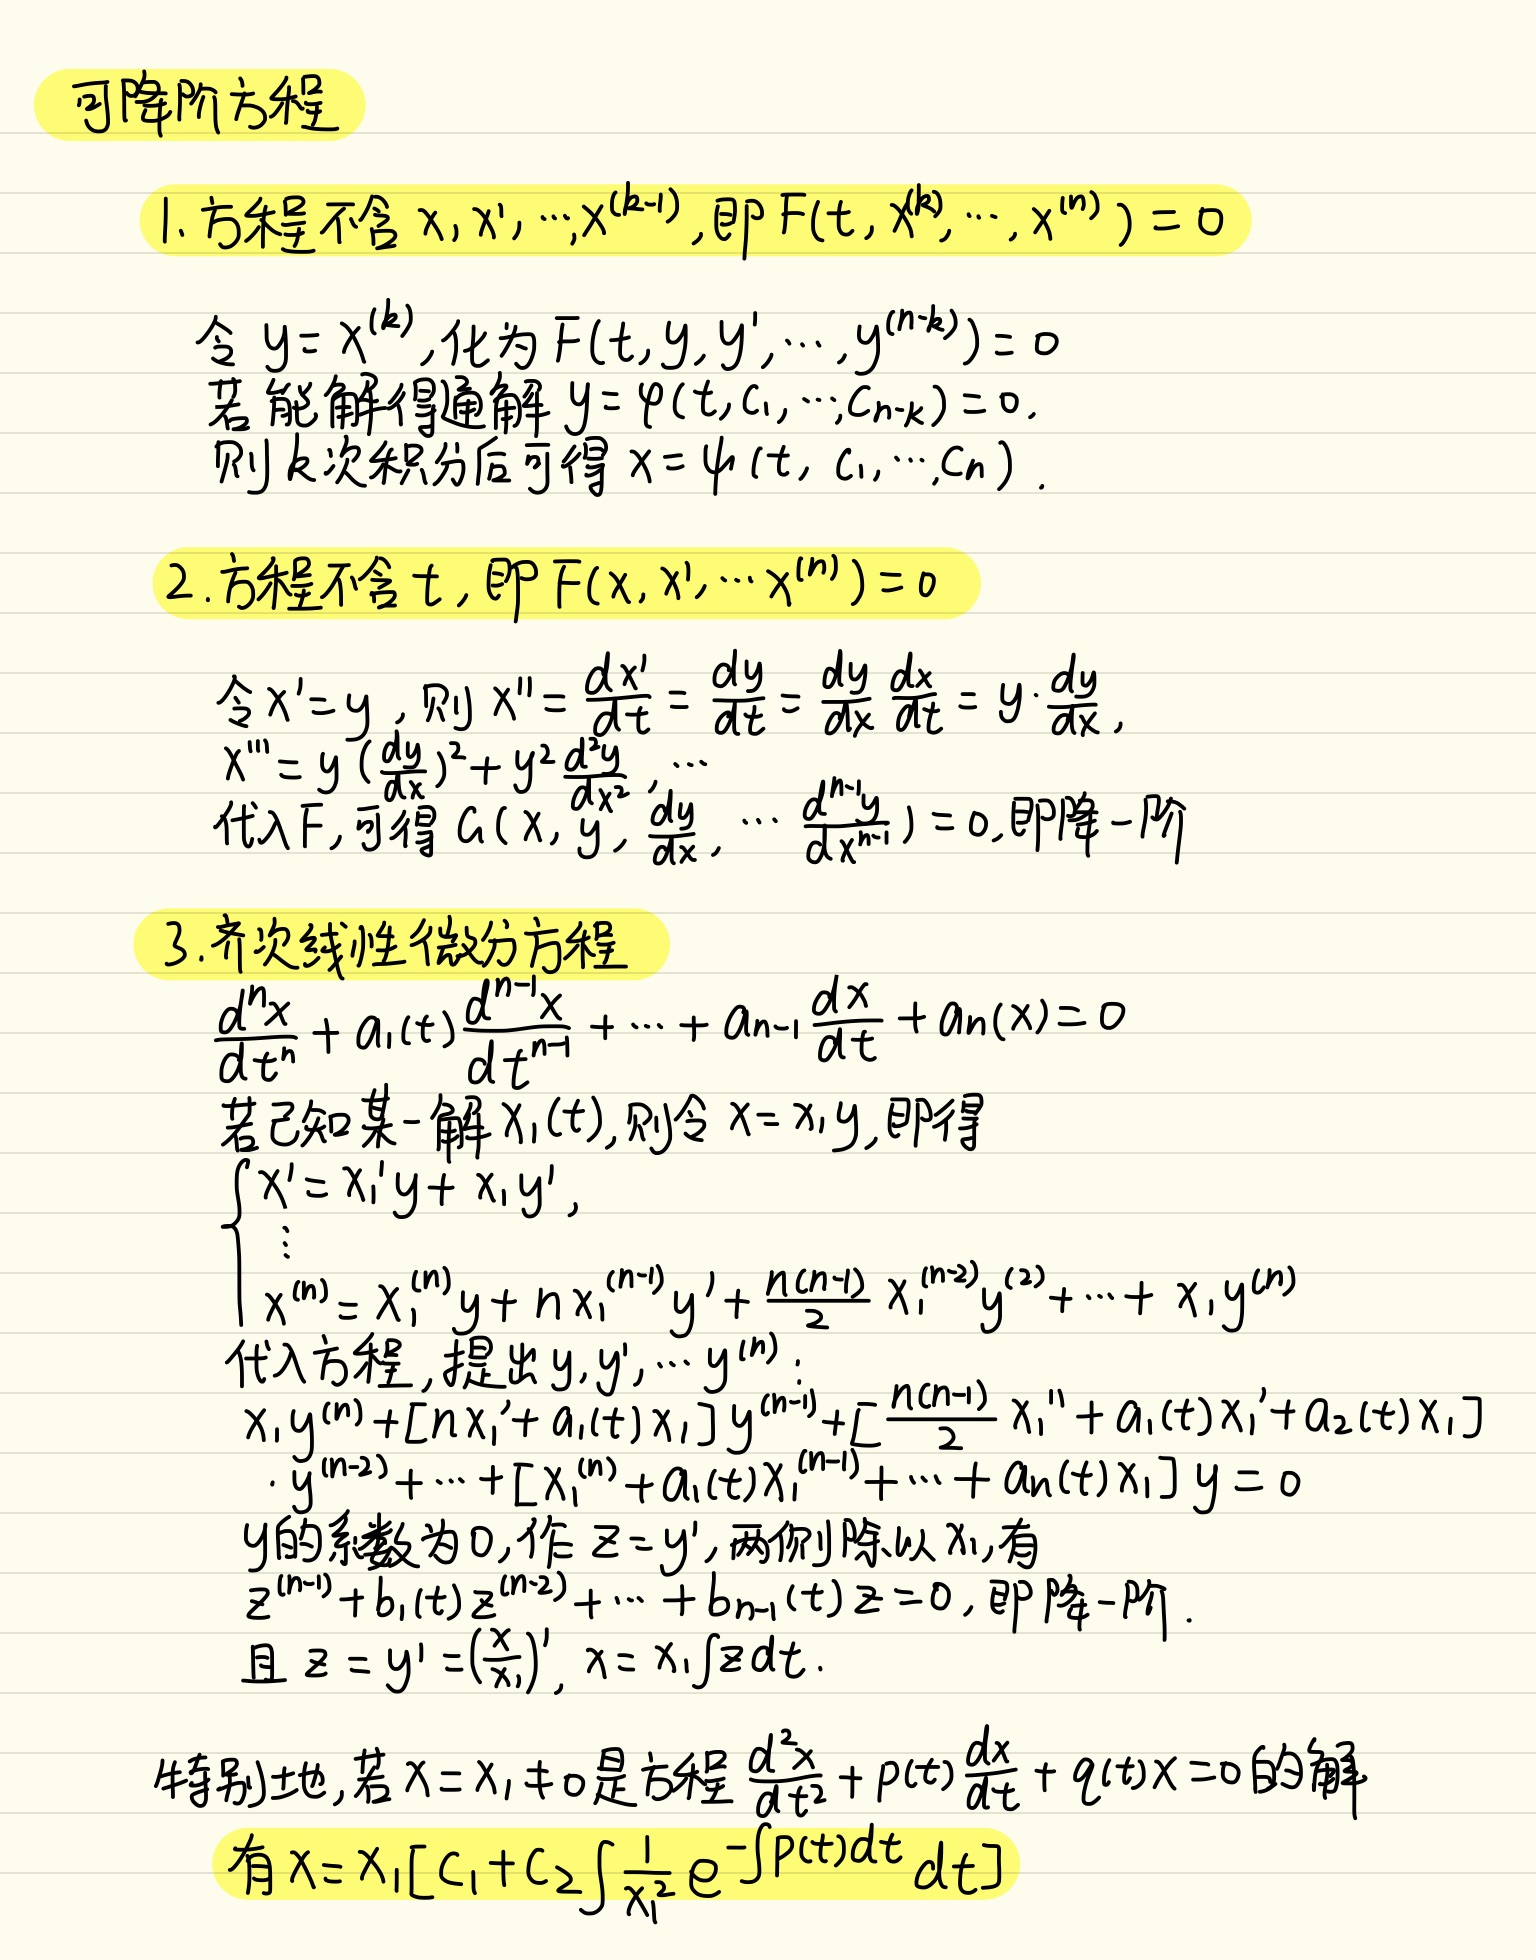 可降阶方程
1. 方程不含 x, x', …, x^(k-1), 即 F(t, x^(k), …, x^(n)) = 0
令 y = x^(k), 化为 F(t, y, y', …, y^(n-k)) = 0
若能解得通解 y = φ(t, c₁, …, c_{n-k}) = 0.
则 k次积分后可得 x = ψ(t, c₁, …, cₙ).
2. 方程不含 t, 即 F(x, x', … x^(n)) = 0
令 x' = y, 则 x'' = dx'/dt = dy/dt = dy/dx dx/dt = y · dy/dx,
x''' = y (dy/dx)² + y² d²y/dx², …
代入F, 可得 G(x, y, dy/dx, … d^{n-1}y/dx^{n-1}) = 0, 即降一阶
3. 齐次线性微分方程
dⁿx/dtⁿ + a₁(t) d^{n-1}x/dt^{n-1} + … + a_{n-1} dx/dt + aₙ(x) = 0
若已知某一解 x₁(t), 则令 x = x₁y, 即得
{ x' = x₁'y + x₁y',
⋮
x^(n) = x₁^(n) y + n x₁^(n-1) y' + n(n-1)/2 x₁^(n-2) y^(2) + … + x₁y^(n)
代入方程, 提出 y, y', … y^(n) :
x₁y^(n) + [nx₁' + a₁(t)x₁] y^(n-1) + [n(n-1)/2 x₁'' + a₁(t)x₁' + a₂(t)x₁]
· y^(n-2) + … + [x₁^(n) + a₁(t)x₁^(n-1) + … + aₙ(t)x₁] y = 0
y的系数为0, 作 z = y', 两侧除以 x₁, 有
z^(n-1) + b₁(t) z^(n-2) + … + b_{n-1}(t) z = 0, 即降一阶.
且 z = y' = (x/x₁)', x = x₁∫zdt.
特别地, 若 x = x₁ ≠ 0 是方程 d²x/dt² + p(t) dx/dt + q(t)x = 0 的解
有 x = x₁[c₁ + c₂∫ 1/x₁² e^{-∫p(t)dt} dt]